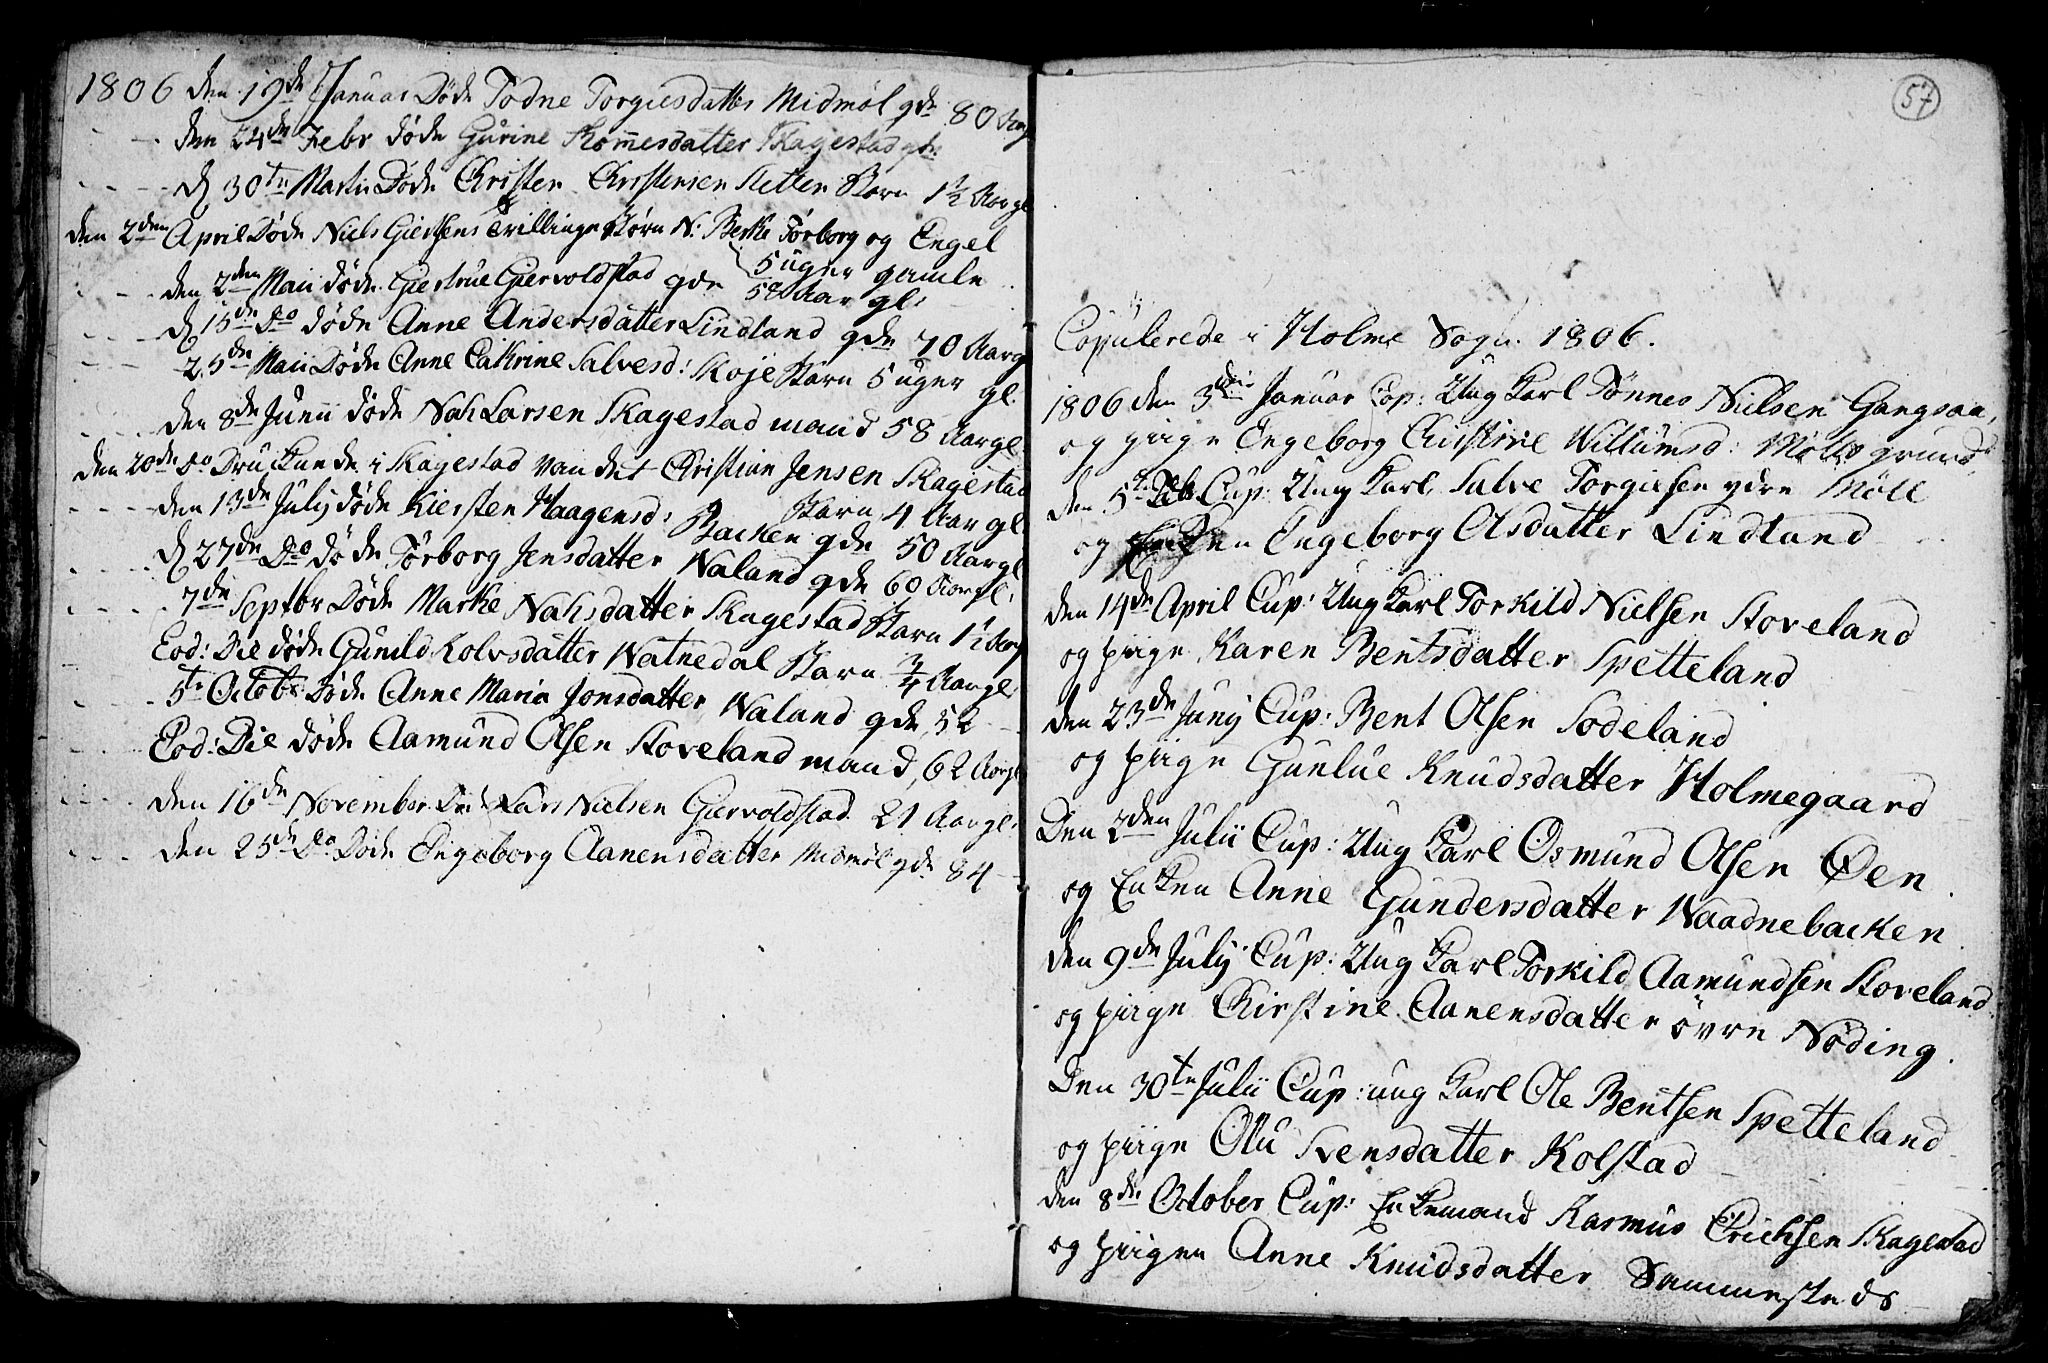 1806 den 19de Januar Døde Todne Torgiesdatter Midmøl gde 80 Aar
den 24de Febr døde Gurine Tommesdatter Skagestad gde
d 30te Martii Døde Christen Christensen Sletten Barn 1½ Aar gl
den 2den April Døde Niels Giertsens Trillinge Børn N: Berte Torborg og Engel
5 uger gamle
den 2den Maii døde Giertrue Giervoldstad gde 58 Aar gl:
d 15de Do døde Anne Andersdatter Lindland gde 70 Aar g
25de Maii Døde Anne Cathrine Salvesd: Køje Barn 5 uger gl.
den 8de Junii døde Nah Larsen Skagestad mand 58 Aar gl
den 20de Do Druknede i Skagestad Vandet Christian Jensen Skagestad
Barn 4 Aar gl
den 13de July døde Kiersten Haagensd: Backen gde 50 Aar gl
d 27de Do døde Torborg Jensdatter Naland gde 60 Aar gl:
7de Septbr Døde Marthe Nahsdatter Skagestad Barn 1½ Aar
Eod: Die døde Gunild Kolvsdatter Watnedal Barn ¾ Aar gl
5te Octobr Døde Anne Maria Jonsdatter Naland gde 52
Eod: Die døde Aamund Olsen Stoveland mand, 62 Aar gl
den 16de November Død Lars Nielsen Giervoldstad 21 Aar gl.
den 25de Do Døde Engeborg Aanensdatter Midmøl gde 84
57
Copulerede i Holme Sogn 1806.
1806 den 3die Januar Cop: Ung Karl Tønnes Nielsen Gangsaa,
og piige Engeborg Christine Willumsd: Mølle grund
den 5te Feb Cup: Ung Karl Salve Torgiesen ydre Møll
og Enken Engeborg Olsdatter Lindland
den 14de April Cup: Ung Karl Torkild Nielsen Stoveland
og piige Karen Bentsdatter Spetteland
den 23de Junij Cup: Bent Olsen Sodeland
og piige Gunlue Knudsdatter Holmegaard
Den 2den Julii Cup: Ung Karl Osmund Olsen Øen
og Enken Anne Gundersdatter Naadnebacken
den 9de July Cup: Ung Karl Torkild Aamundsen Stoveland
og piige Christine Aanensdatter övre Nøding.
Den 30te Julii Cup: ung Karl Ole Bentsen Spetteland
og piige Olu Svensdatter Kolstad
den 8de October Cup: Enkemand Rasmus Erichsen Skagestad
og piigen Anne Knudsdatter Sammesteds